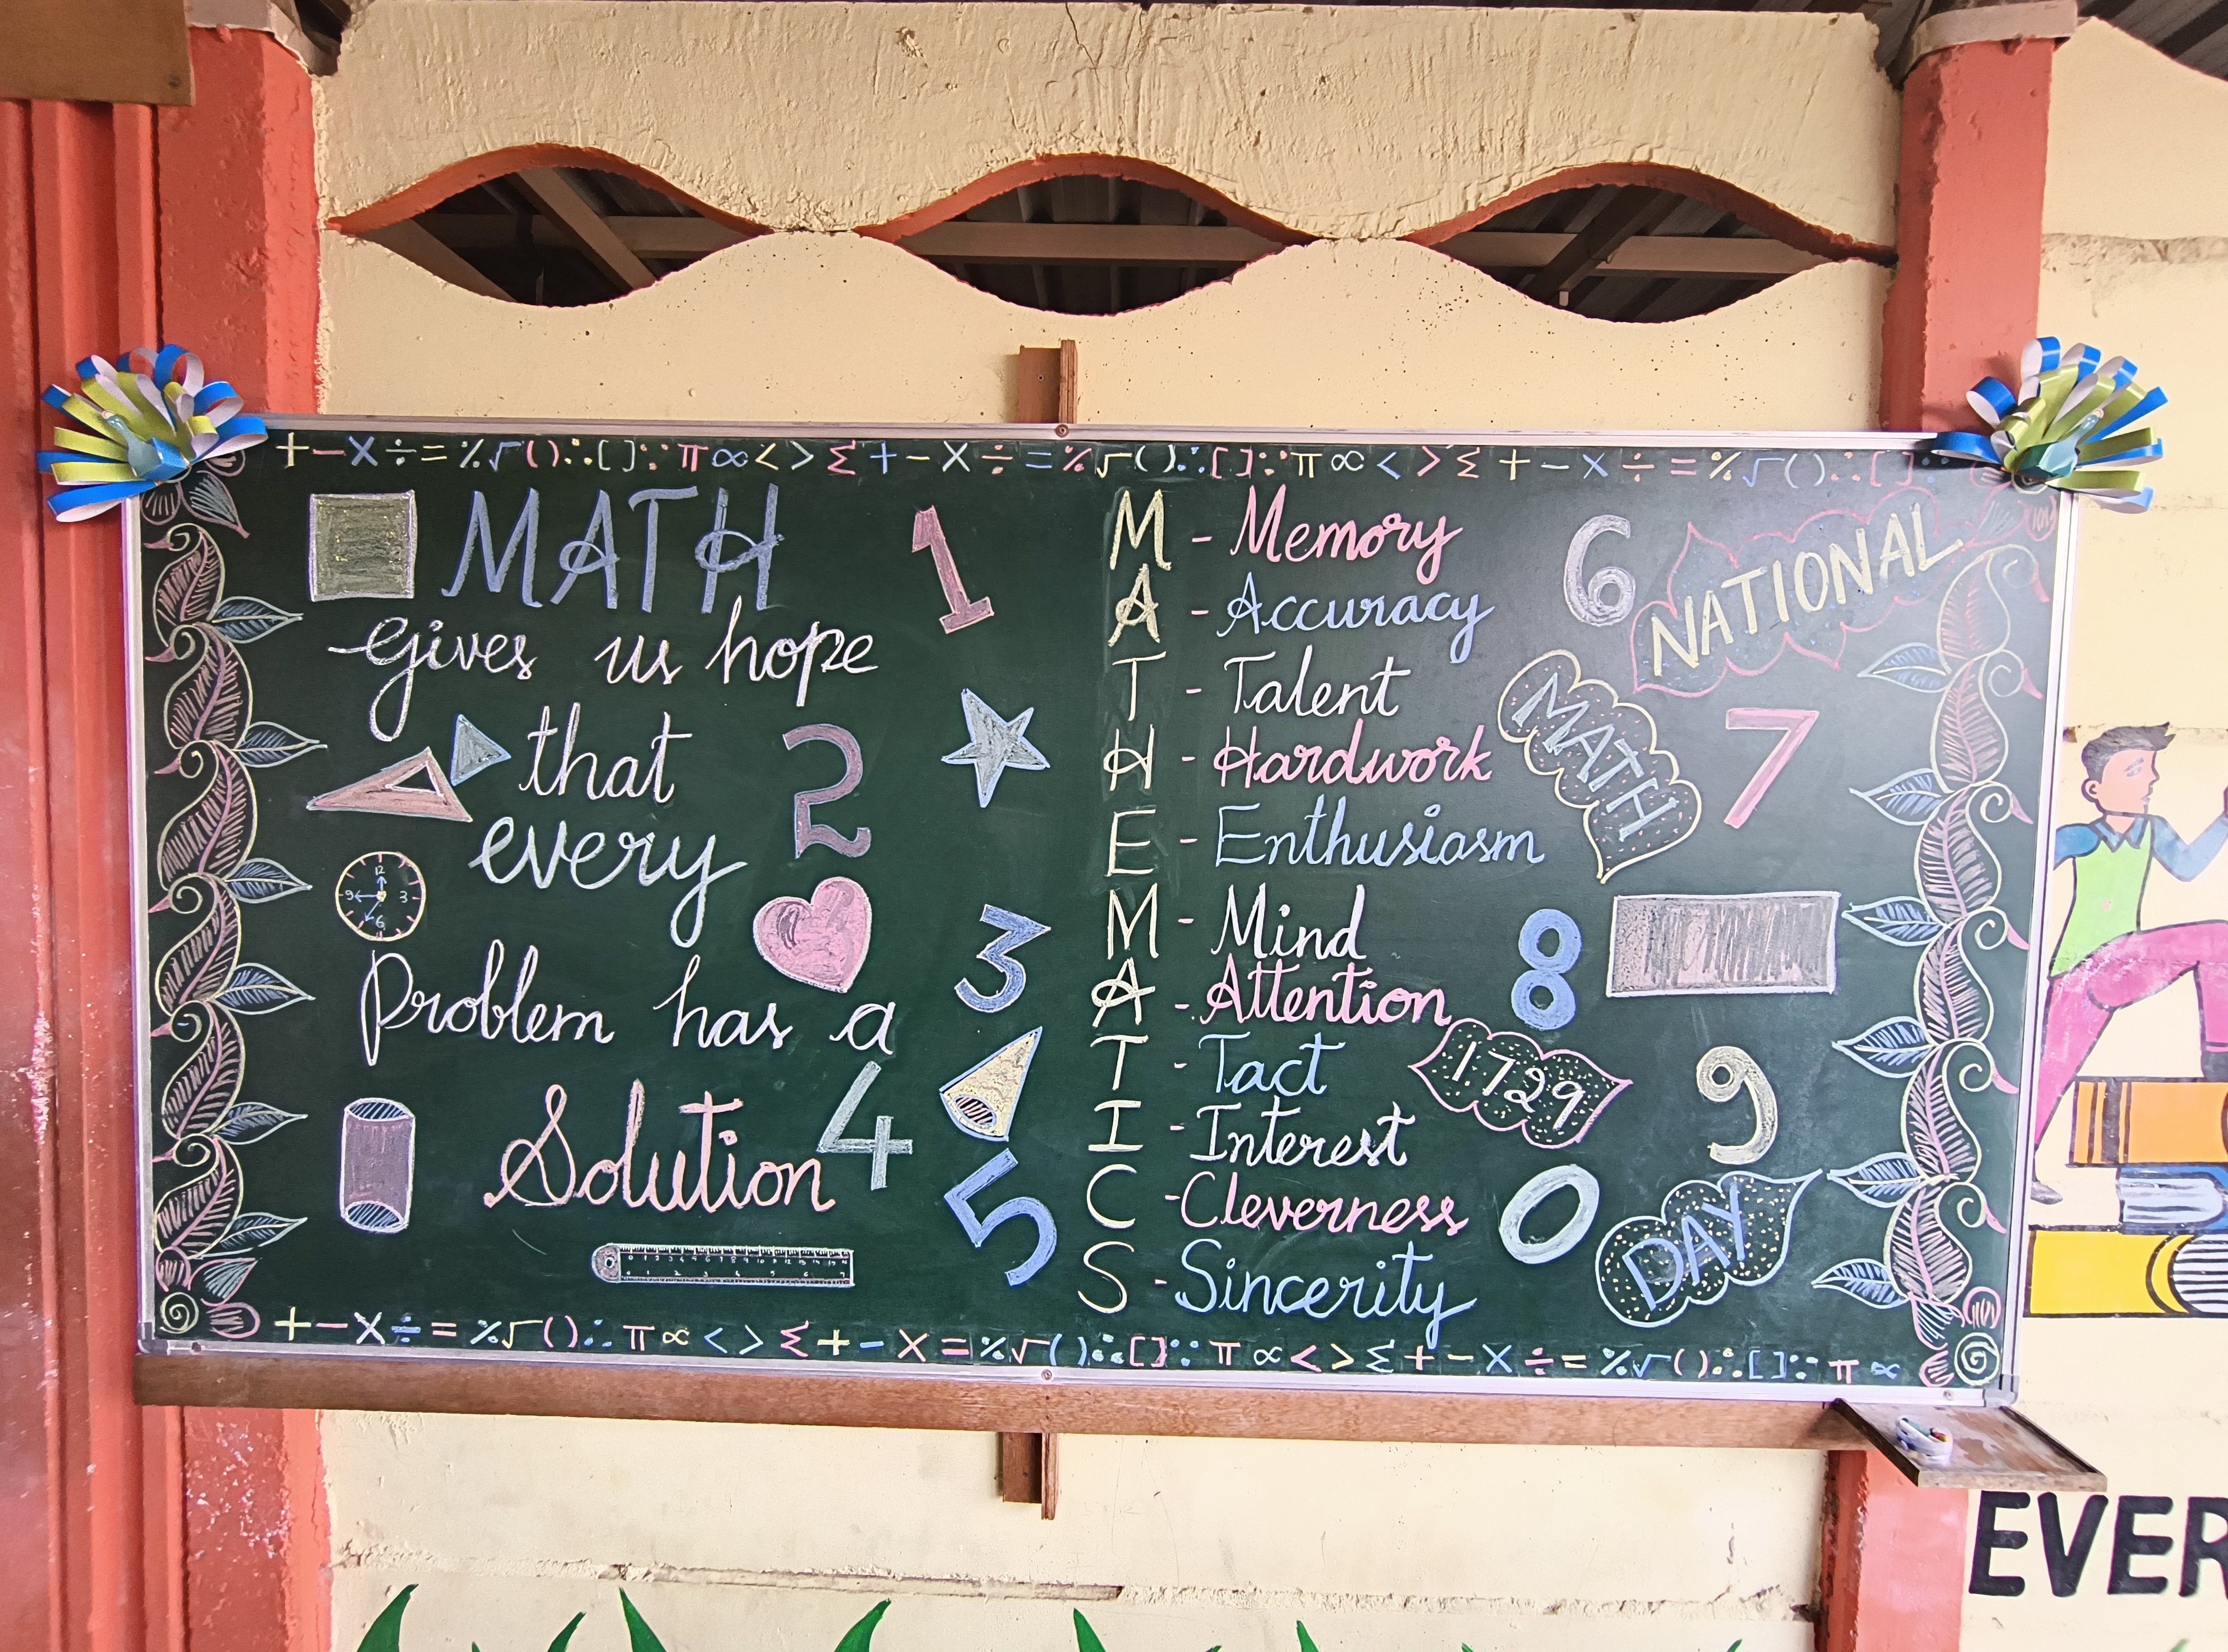 + - × ÷ = % √ ( ) ∴ [ ] ∵ π ∝ < > Σ + - × ÷ = % √ ( ) ∴ [ ] ∵ π ∝ < > Σ + - × ÷ = % √ ( ) ∴ [ ]
MATH
gives us hope
that
every
Problem has a
Solution
1
2
3
4
5
12
3
6
9
M - Memory
A - Accuracy
T - Talent
H - Hardwork
E - Enthusiasm
M - Mind
A - Attention
T - Tact
I - Interest
C - Cleverness
S - Sincerity
6
NATIONAL
MATH
7
8
1729
9
0
DAY
+ - × ÷ = % √ ( ) ∴ π ∝ < > Σ + - × = % √ ( ) ∴ [ ] ∵ π ∝ < > Σ + - × ÷ = % √ ( ) ∴ [ ] ∵ π ∝
EVER